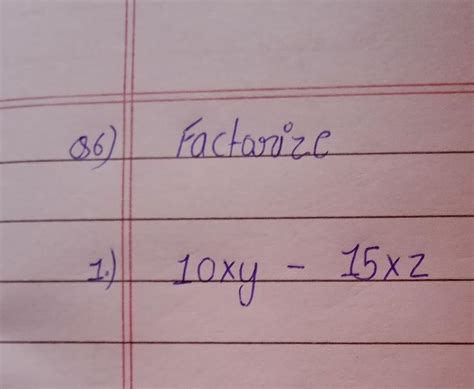 Q6) Factorize
1.) 10xy - 15xz